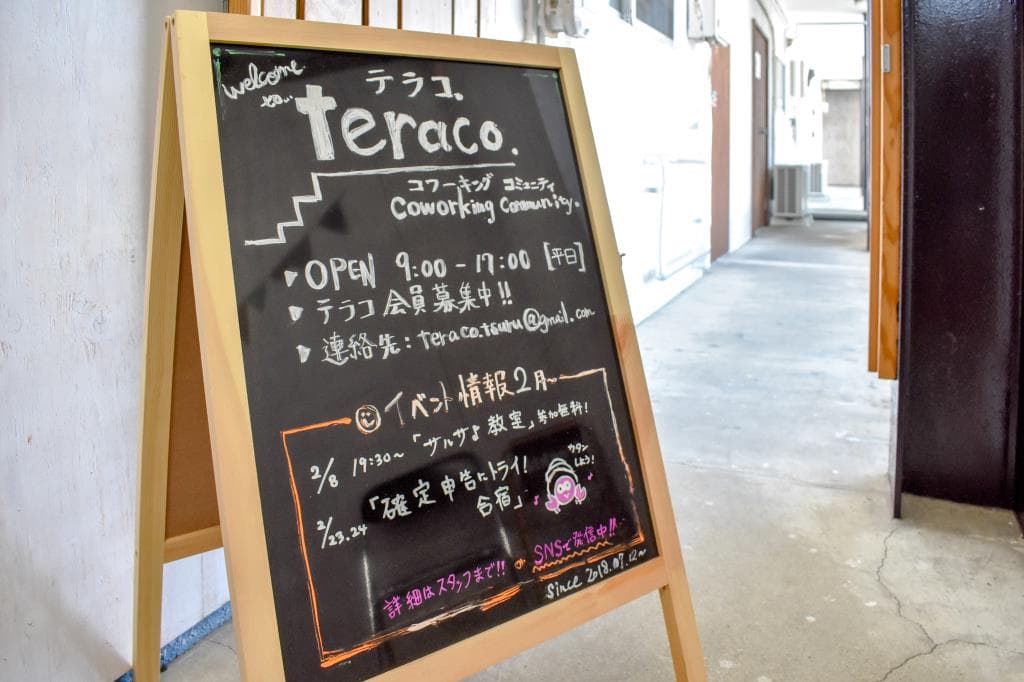 welcome
to...
テラコ。
teraco.
コワーキング コミュニティ
Coworking Community.
▶ OPEN 9:00 - 17:00 [平日]
▶ テラコ会員募集中!!
▶ 連絡先: teraco.tsuru@gmail.com
イベント情報2月~
2/8 19:30~ 「サルサ♪教室」参加無料!
2/23.24 「確定申告にトライ!
合宿」
カタン
しよう!
詳細はスタッフまで!!
SNSで発信中!!...
Since 2018.07.12~